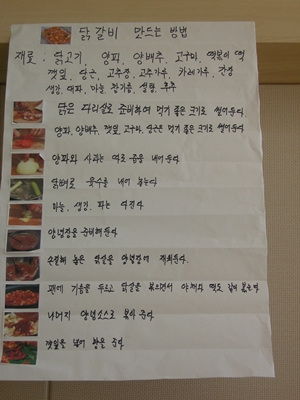 닭갈비 만드는 방법
재료 : 닭고기, 양파, 양배추, 고구마, 떡볶이 떡
깻잎, 당근, 고추장, 고추가루, 카레가루, 간장
생강, 대파, 마늘, 참기름, 설탕, 후추
닭은 다리살로 준비하여 먹기 좋은 크기로 썰어둔다
양파, 양배추, 깻잎, 고구마, 당근은 먹기 좋은 크기로 썰어둔다
양파와 사과는 여로 즙을 내어 둔다
닭뼈로 육수를 내어 놓는다
마늘, 생강, 파는 다진다
양념장을 준비해 둔다
손질해 놓은 닭살을 양념장에 재워둔다
팬에 기름을 두르고 닭살을 볶으면서 야채와 떡도 같이 볶는다
나머지 양념소스로 볶아 준다
깻잎을 넣어 향을 준다